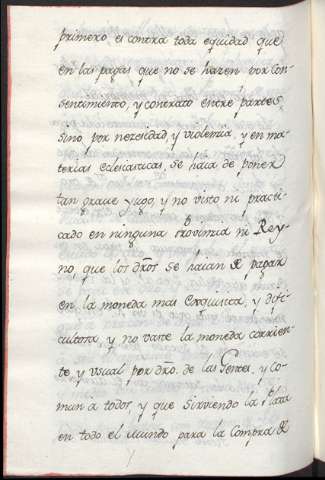 primero es contra toda equidad que
en las pagas que no se hazen por con
sentimiento, y contrato entre partes
sino por nezesidad, y violenzia, y en ma
terias eclesiasticas, se haia de poner
tan graue yugo, y no visto ni practi
cado en ninguna Provinzia ni Rey
no, que los dros se haian de pagar
en la moneda mas exquisita, y difi
cultosa, y no vaste la moneda corrien
te, y usual por dro. de las Gentes, y co
mun a todos, y que sirviendo la Plata
en todo el mundo para la compra de